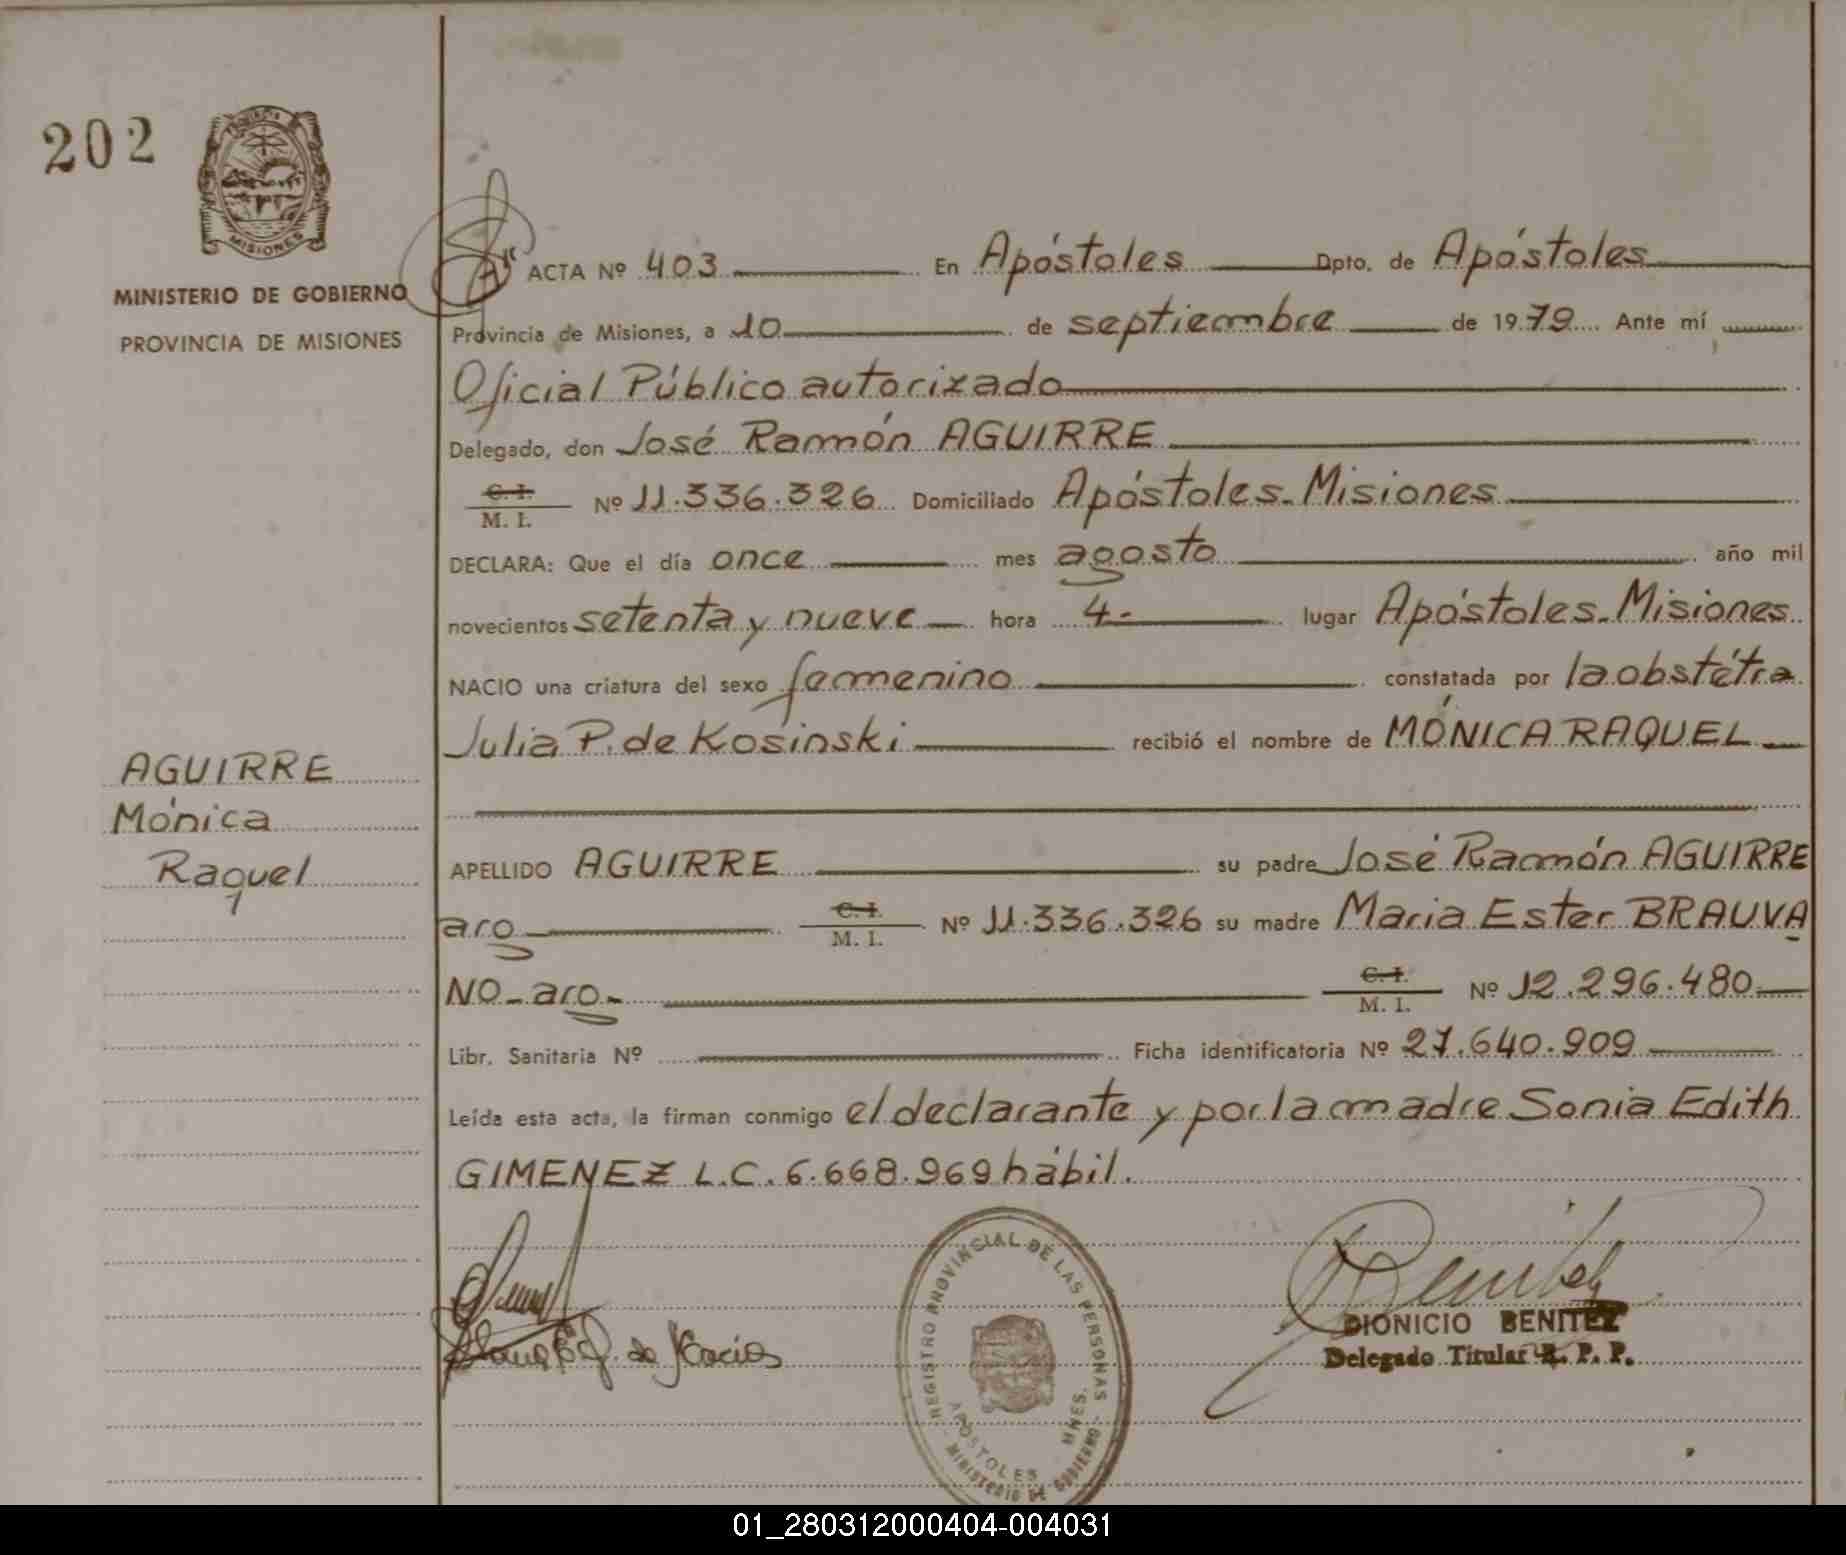 202
PROVINCIA
MISIONES
MINISTERIO DE GOBIERNO
PROVINCIA DE MISIONES
ACTA Nº 403 En Apóstoles Dpto. de Apóstoles
Provincia de Misiones, a 10 de septiembre de 1979 Ante mí
Oficial Público autorizado
Delegado, don José Ramón AGUIRRE
C. I.
M. I. Nº 11.336.326 Domiciliado Apóstoles-Misiones
DECLARA: Que el día once mes agosto año mil
novecientos setenta y nueve hora 4- lugar Apóstoles-Misiones
NACIO una criatura del sexo femenino constatada por la obstétra
Julia P. de Kosinski recibió el nombre de MÓNICA RAQUEL
AGUIRRE
Mónica
Raquel
APELLIDO AGUIRRE su padre José Ramón AGUIRRE
aro C. I. M. I. Nº 11.336.326 su madre Maria Ester BRAUVA
NO-aro- C. I. M. I. Nº 12.296.480
Libr. Sanitaria Nº Ficha identificatoria Nº 27.640.909
Leída esta acta, la firman conmigo el declarante y por la madre Sonia Edith
GIMENEZ L.C. 6.668.969 hábil.
REGISTRO PROVINCIAL DE LAS PERSONAS
APOSTOLES MNES.
MINISTERIO DE GOBIERNO
Benitez
DIONICIO BENITEZ
Delegado Titular R. P. P.
01_280312000404-004031